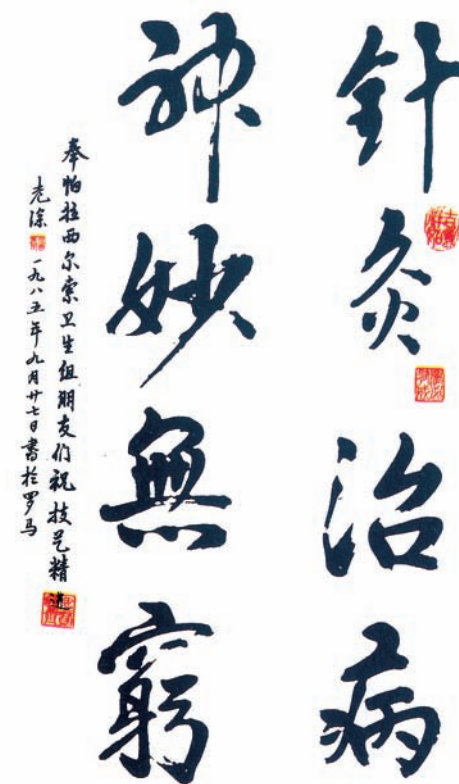 針灸治病
神妙無窮
奉帕拉西尔索卫生组朋友们祝技艺精進
一九八五年九月廿七日書於罗马